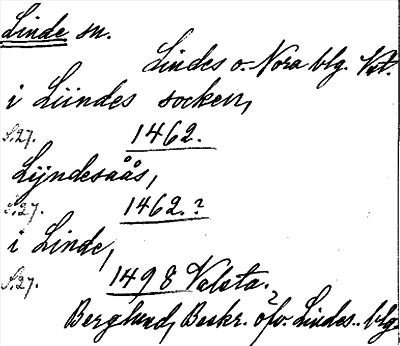 Linde sn.
Lindes o. Nora blg. Vst.
i Liindes socken,
S. 27. 1462.
Lijndesåås,
S. 27. 1462.?
i Linde,
S. 27. 1498 Valsta.
Berglund, Beskr. öfv. Lindes.. blg